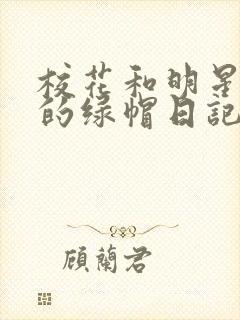 校花和明星
的绿帽日記
顧蘭君